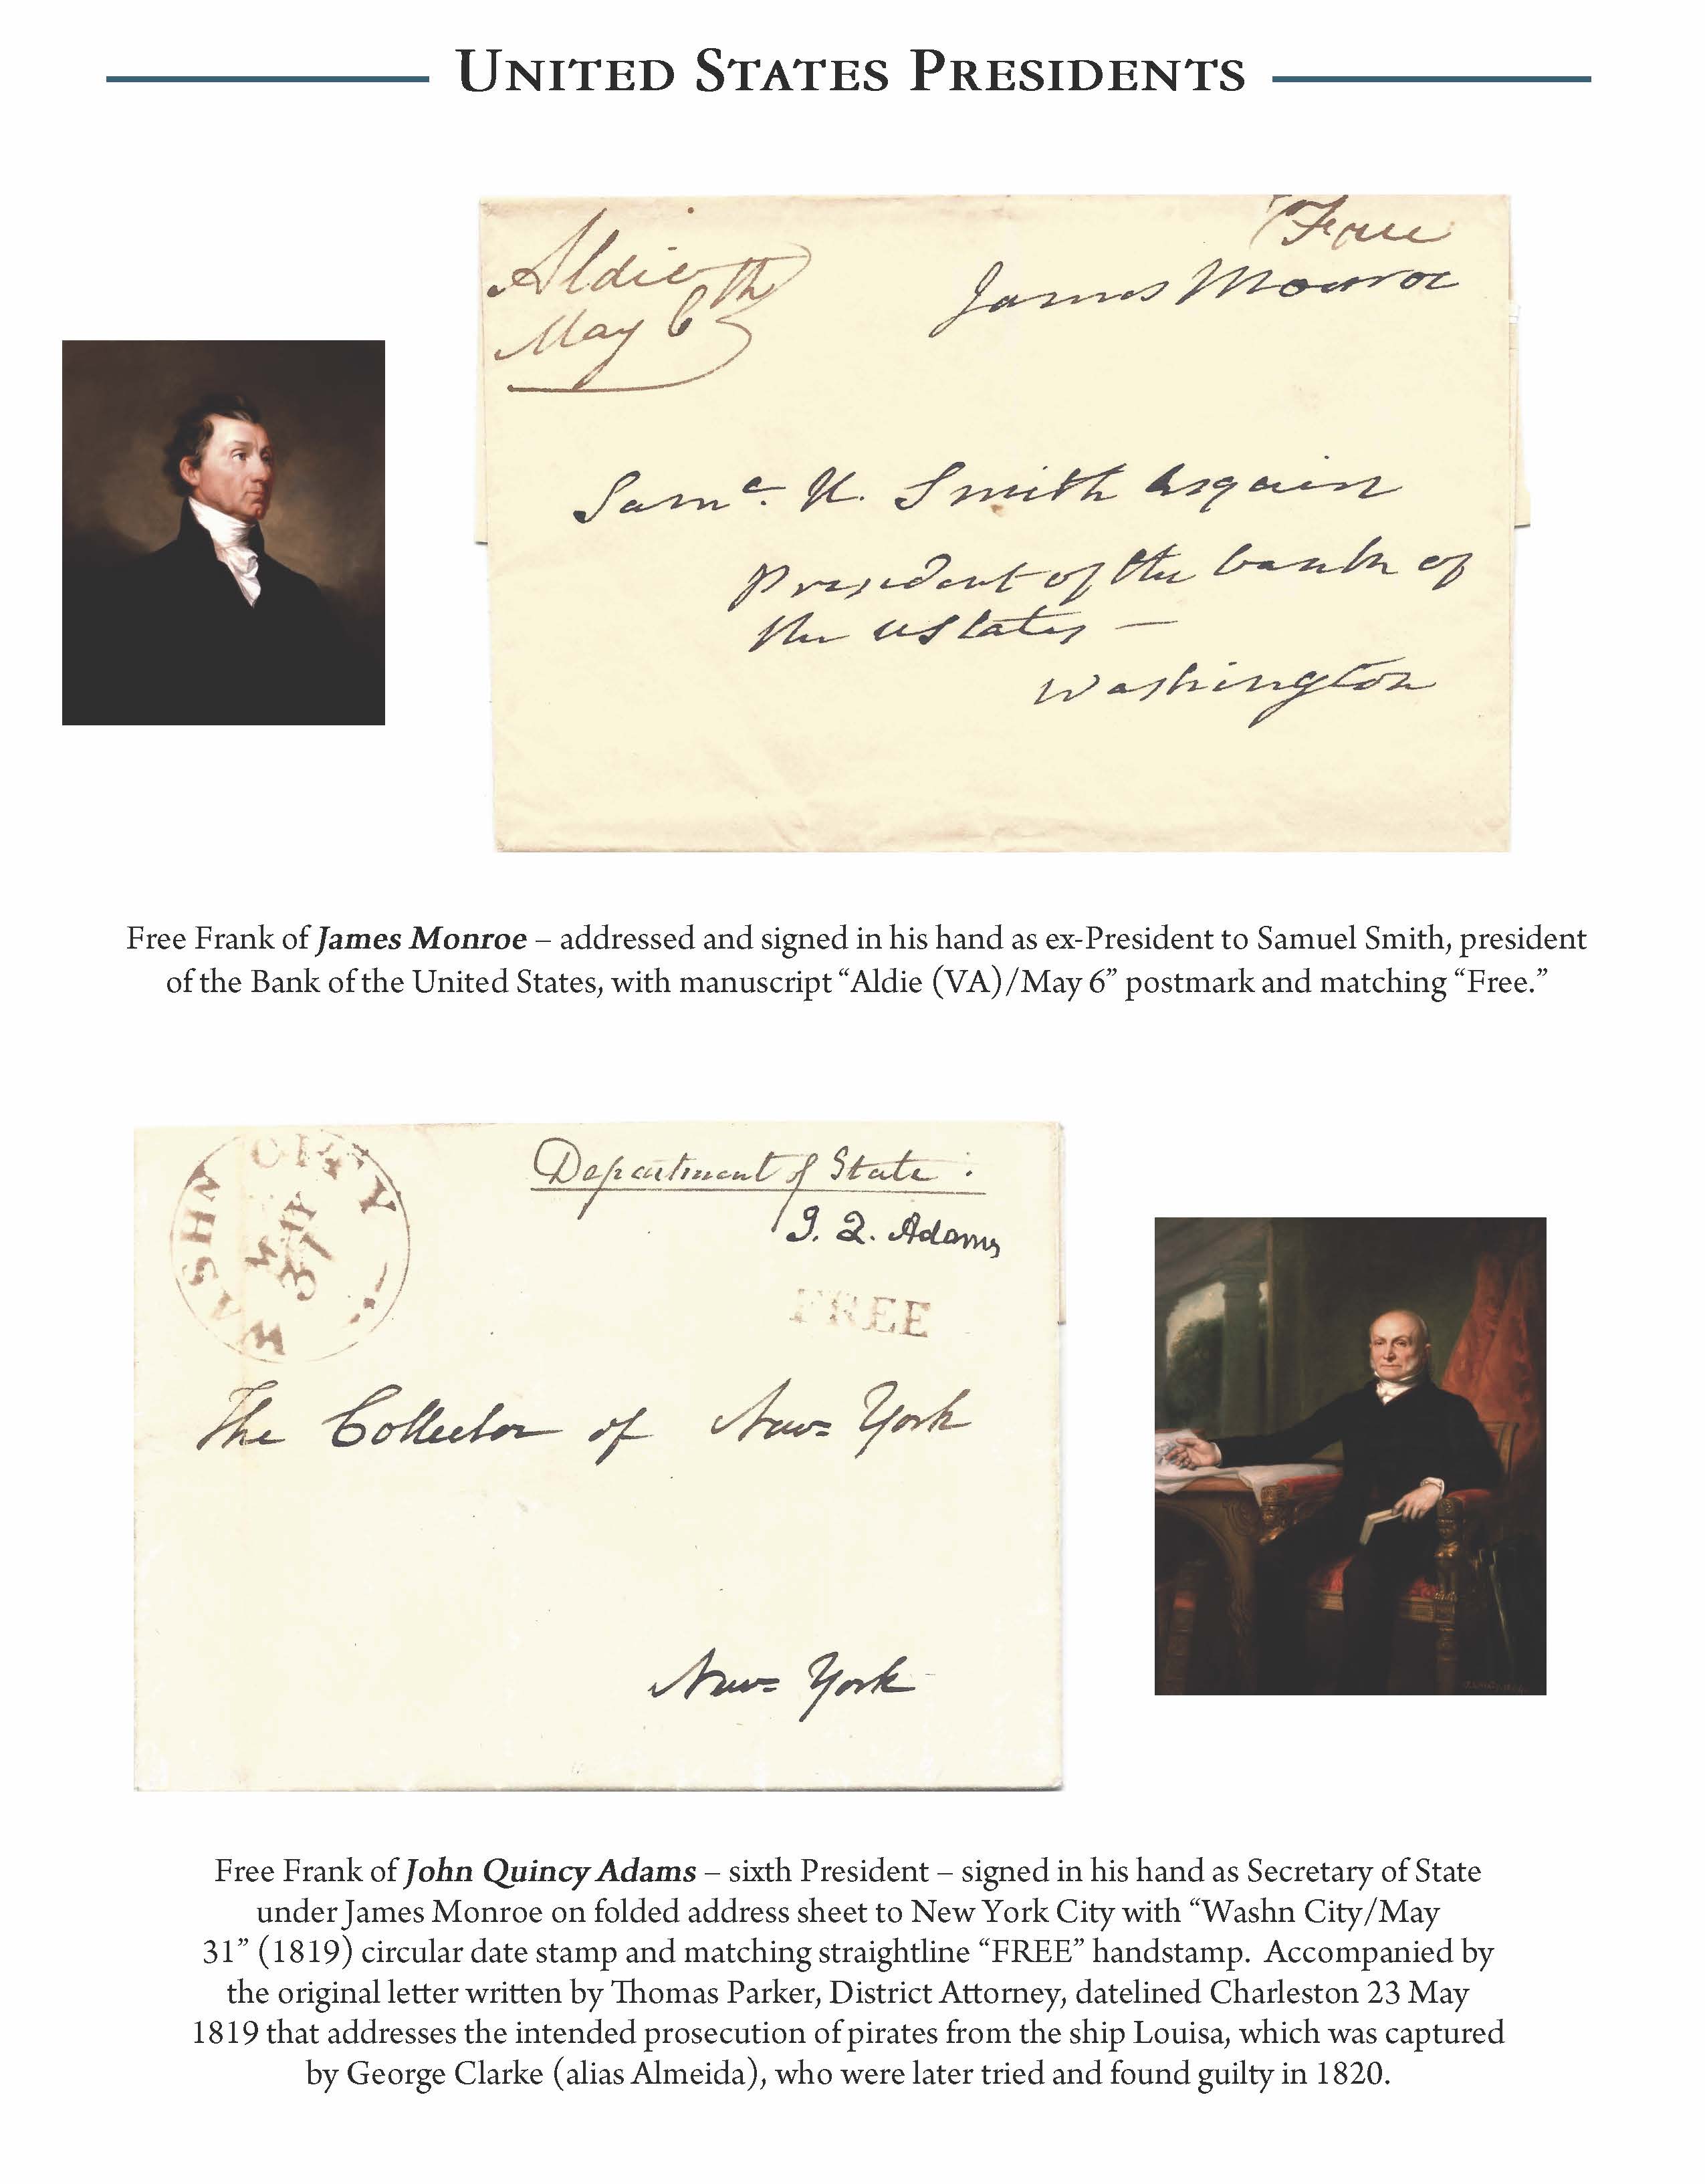 UNITED STATES PRESIDENTS
Free
Aldie th
May 6
James Monroe
Saml. H. Smith Esquire
President of the bank of
the UStates —
Washington
Free Frank of James Monroe – addressed and signed in his hand as ex-President to Samuel Smith, president
of the Bank of the United States, with manuscript “Aldie (VA)/May 6” postmark and matching “Free.”
WASHN CITY
MAY
31
Department of State.
J. Q. Adams
FREE
The Collector of New=York
New=York
Free Frank of John Quincy Adams – sixth President – signed in his hand as Secretary of State
under James Monroe on folded address sheet to New York City with “Washn City/May
31” (1819) circular date stamp and matching straightline “FREE” handstamp. Accompanied by
the original letter written by Thomas Parker, District Attorney, datelined Charleston 23 May
1819 that addresses the intended prosecution of pirates from the ship Louisa, which was captured
by George Clarke (alias Almeida), who were later tried and found guilty in 1820.